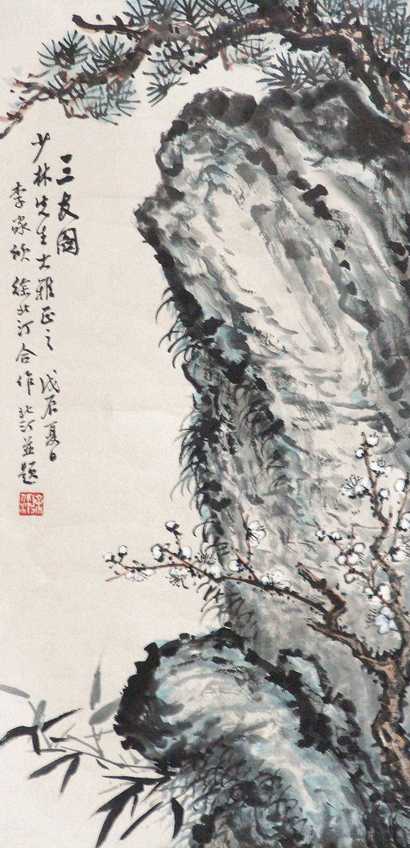 三友图
少林先生大雅正之 戊辰夏日
李家欣 徐北汀合作 北汀并题